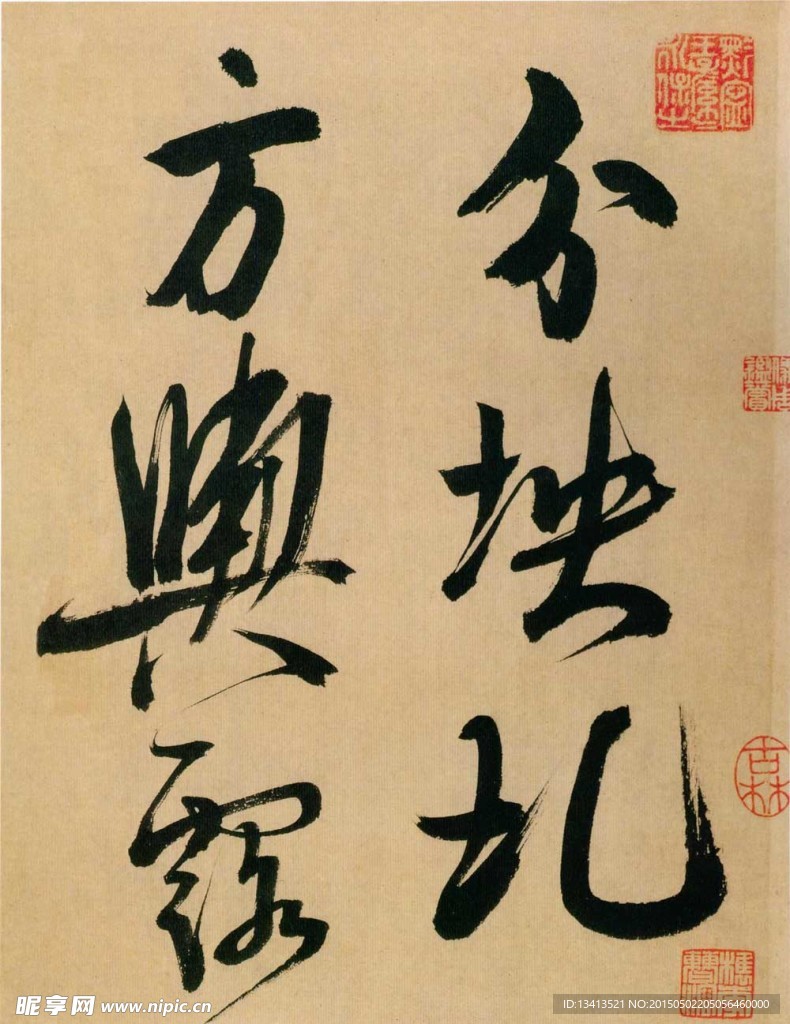 分坱圠
方輿露
昵享网 www.nipic.cn
ID:13413521 NO:20150502205056460000